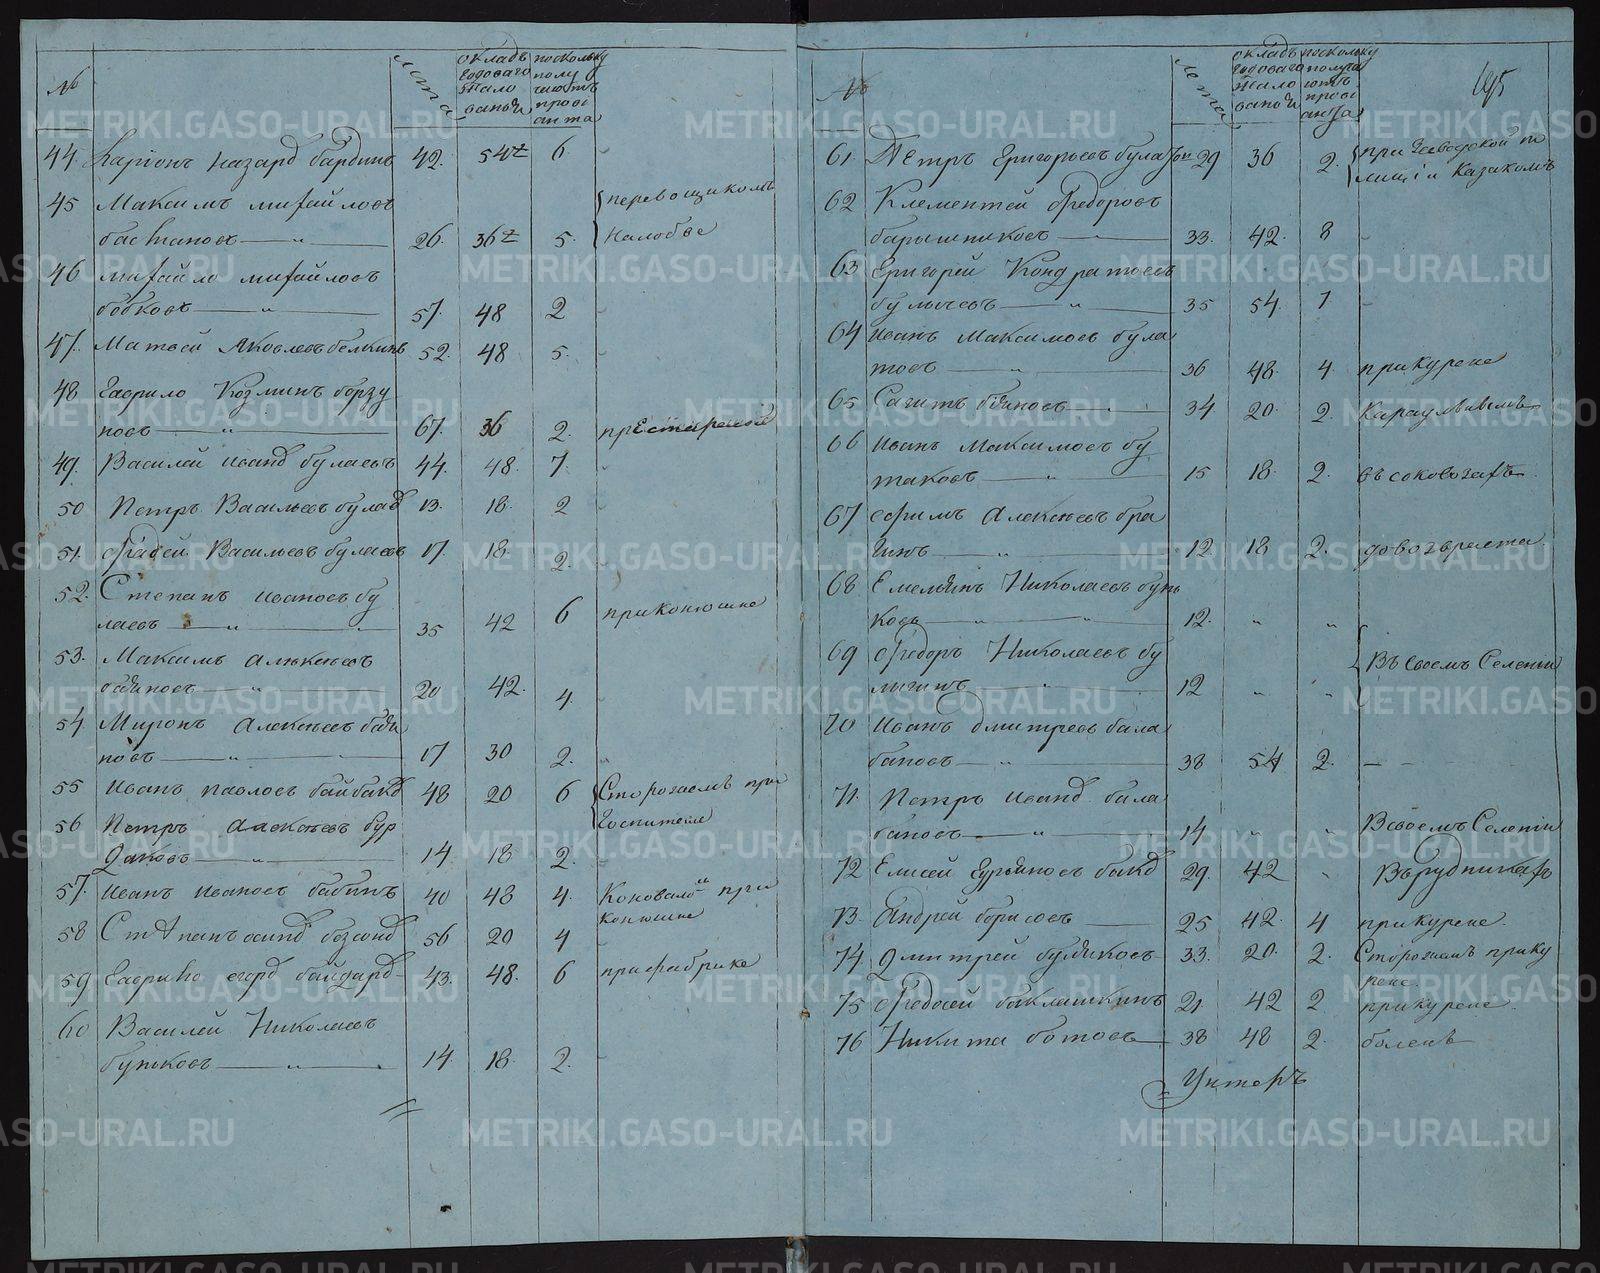 №
лета
окладъ
годоваго
жало
ванья
поскольку
полу
чаютъ
прові
анта
44 Ларіонъ Назаро Бардинъ 42. 54 6
45 Максимъ Михайловъ
Бастановъ 26. 36 5. перевощикомъ
Налобве
46 Михайло Михайловъ
Бобковъ 57. 48 2
47. Матвей Яковлевъ Белкинъ 52. 48 5.
48 Гаврило Козминъ Борзу
новъ 67. 36 2. престарелой
49. Василей Ивано Булаевъ 44. 48. 7.
50 Петръ Васильевъ Булае 13. 18. 2
51. Фадей Васильевъ Булаевъ 17 18. 2.
52. Степанъ Ивановъ Бу
лаевъ 35 42 6 при конюшне
53. Максимъ Алексеевъ
Баяновъ 20 42. 4.
54 Миронъ Алексеевъ Бая
новъ 17 30 2.
55 Иванъ Павловъ Байбако 48 20 6 Сторожемъ при
Госпитале
56 Петръ Алексеевъ Бур
даковъ 14. 18 2.
57. Иванъ Ивановъ Бабинъ 40 48 4. Коновало при
конюшне
58 Степанъ Осипо 56 20 4
59 Гаврило Егоро Байдаро 43. 48. 6 при фабрике
60 Василей Николаевъ
Буньковъ 14. 18. 2.
№
лета
окладъ
годоваго
жало
ванья
поскольку
получа
ютъ
прові
анта
61 Петръ Григорьевъ 29 36 2. при Заводской по
лиціи Казакомъ
62 Клементей Федоровъ
Барышниковъ 33. 42. 8
63 Григорей Кондратьевъ
Булычевъ 35 54. 7
64 Иванъ Максимовъ Була
товъ 36 48. 4 при курене
65 Сагитъ Баяновъ 34 20. 2. Караульнымъ
66 Иванъ Максимовъ Бу
таковъ 15 18. 2.
67 Ефимъ Алексеевъ Бра
гинъ 12. 18 2. до возвраста
68 Емельянъ Николаевъ Бунь
ковъ 12. " "
69 Федоръ Николаевъ Бу
лыгинъ 12 " " Въ своемъ Селеніи
70 Иванъ Дмитревъ Бала
бановъ 38 54 2.
71. Петръ Ивано Бала
бановъ 14 " " В своемъ Селеніи
72 Елисей Бако 29. 42 " Въ рудникахъ
73. Андрей Борисовъ 25 42. 4 при курене
74 Дмитрей Буляковъ 33. 20. 2. Сторожемъ при ку
рене.
75 Федосей Баклашкинъ 21 42 2 при курене
76 Никита Ботовъ 38 48 2. боленъ
Унтеръ